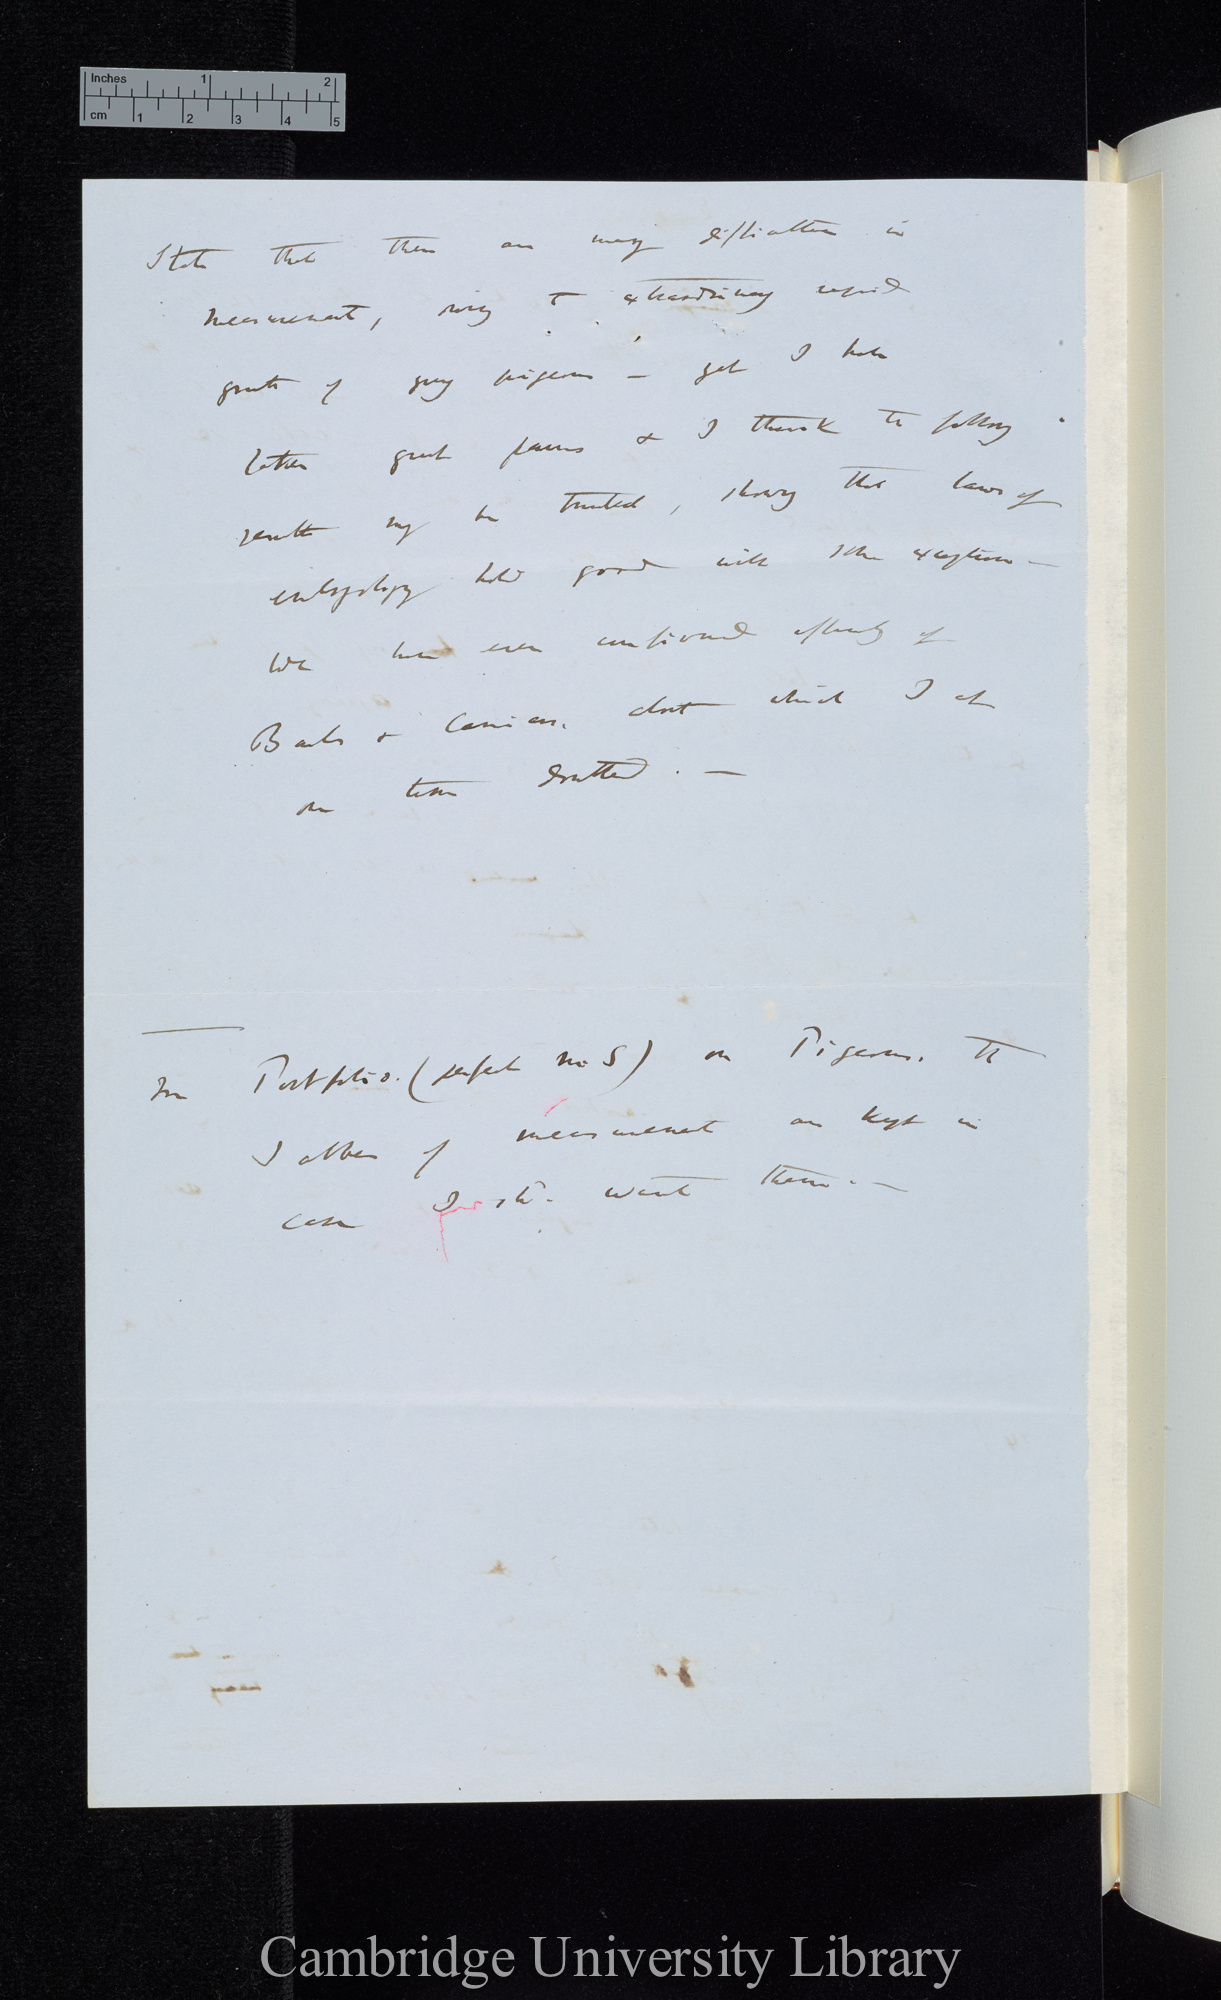 Inches 1 2
cm 1 2 3 4 5
State that there are many difficulties in
measurement, owing to extraordinary rapid
growth of young pigeons — yet I have
taken great pains & I think the following
results may be trusted, showing that laws of
embryology hold good with some exceptions —
We have even confirmed affinity of
Barbs & Carriers. about which I at
one time doubted. —
In Portfolio. (perfect No 5) on Pigeons. the
Tables of measurement are kept in
case I shd. want them. —
Cambridge University Library